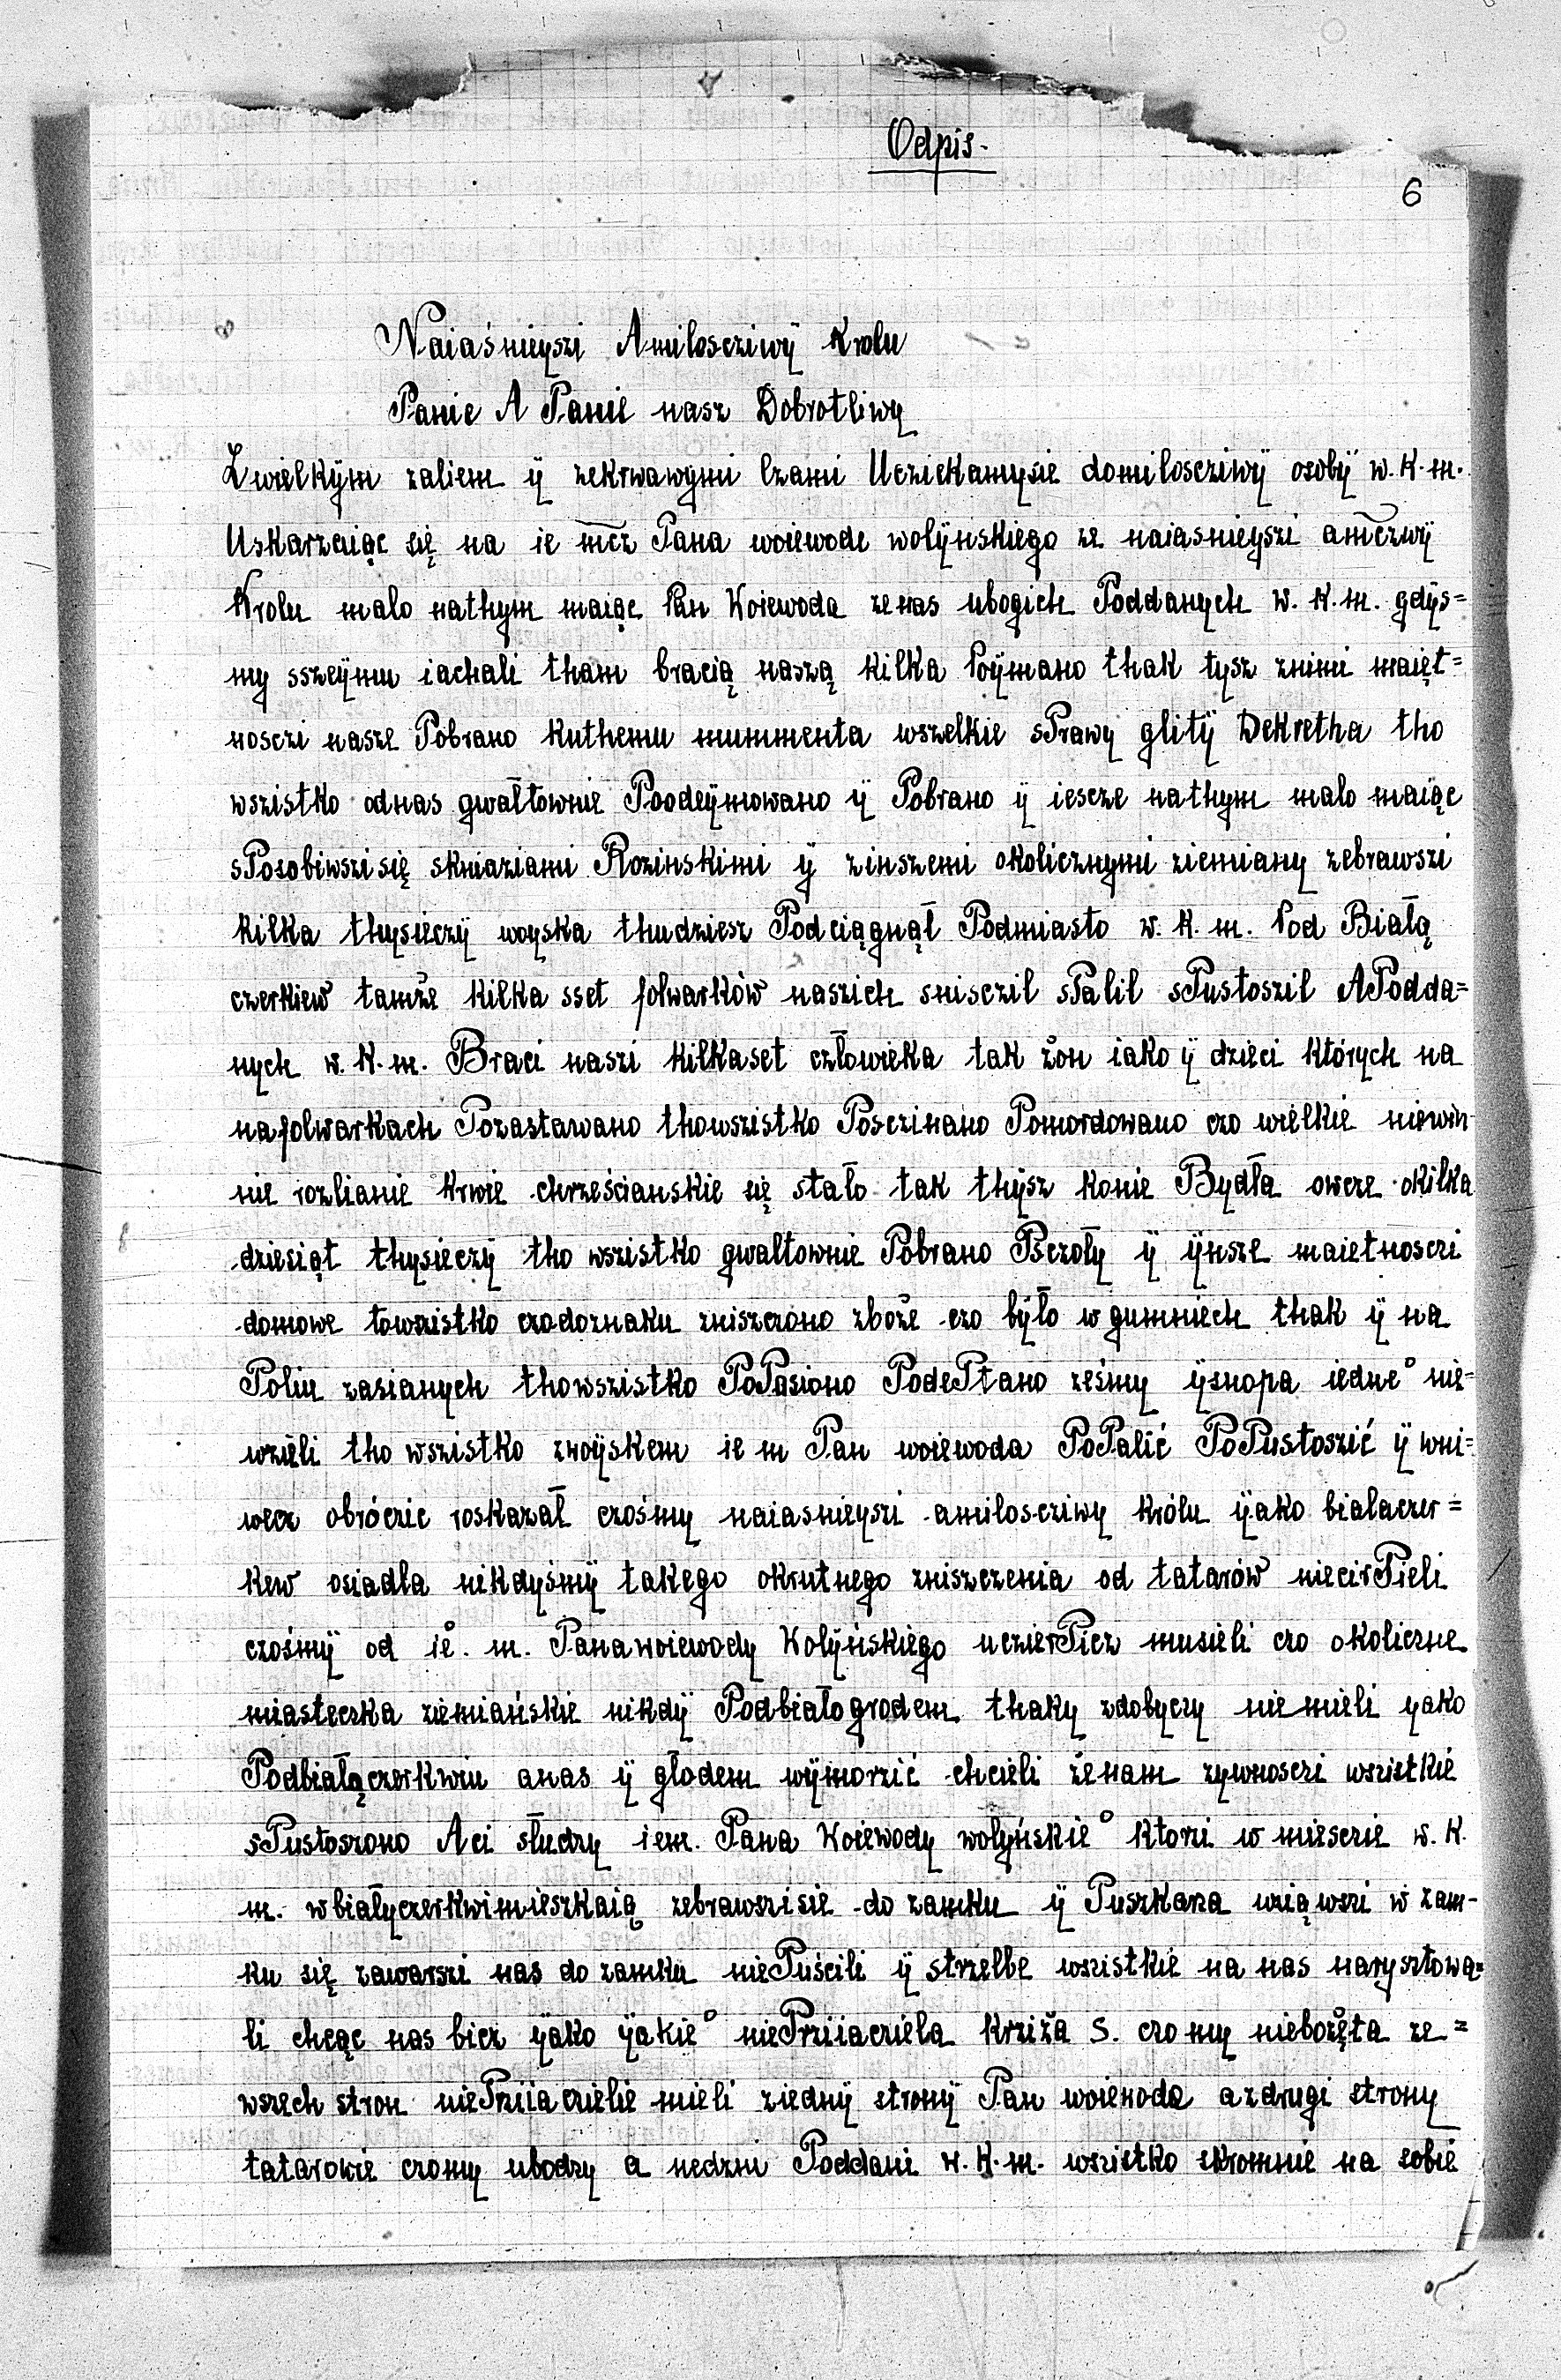 Odpis.
6
Naiaśnieyszi Amiloscziwÿ Krolu
Panie A Panie nasz Dobrotliwy
Zwielkÿm zaliem ÿ zekrwawymi lzami Ucziekamysie domilosciwÿ osobÿ w. K. m.
Uskarzaiąc się na ie mcz Pana woiewode wolÿnskiego ze naiasnieyszi amczwÿ
Krolu malo nathym maiąc Pan Woiewoda ze nas ubogich Poddanych W. K. m. gdÿs=
my sszeÿmu iachali tham bracią naszą kilka Poÿmano thak tysz znimi maięt=
nosczi nasze Pobrano kuthemu mummenta wszelkie sPrawy glitÿ Dekretha tho
wszistko odnas gwałtownie Poodeÿmowano ÿ Pobrano ÿ iescze nathym malo maiąc
sPosobiwszi się skniaziami Rozinskimi ÿ zinszemi okolicznymi ziemiany zebrawszi
kilka thysieczÿ woyska thudziesz Podciągnął Podmiasto W. K. m. Pod Białą
czerkiew tamże kilka sset folwarków naszich sniszczil sPalil sPustoszil APodda=
nych w. K. m. Braci naszi kilkaset człowieka tak żon iako ÿ dzieci których na
nafolwarkach Pozastawano thowszistko Posczinano Pomordowano czo wielkie niewin-
nie rozlianie krwie chrześcianskie się stało tak thÿsz konie Bydła owcze okilka
dziesiąt thysieczÿ tho wszistko gwaltownie Pobrano Psczoły ÿ ÿnsze maietnosczi
domowe towszistko czodoznaku zniszczono zboże czo bÿło w gumniech thak ÿ na
Poliu zasianych thowszistko PoPasiono PodePtano ześmy ÿsnopa iedne° nie=
wzieli tho wszistko zwoÿskem ie m Pan woiewoda PoPalić PoPustoszić ÿ wni=
wecz obróczic roskazał czośmy naiasnieyszi amilosciziwy królu ÿako bialaczer=
kew osiadla nikdyśmÿ takego okrutnego zniszczenia od tatarów niecirPieli
czośmÿ od ie°. m. Panawoiewody Wolÿńskiego uczierPicz musieli czo okoliczne
miasteczka ziemiańskie nikdÿ Podbiałogrodem thaky zdobyczy nie mieli yako
Podbiałączerkwiu anas ÿ głodem wÿmorzić chcieli że nam zywnosczi wszistkie
sPustoszono A ci słudzy iem. Pana Woiewody wolyńskie° ktorzi w miescie w. K.
m. wbiałyczerkwimieszkaią zebrawszi sie do zamku ÿ Puszkarza wziąwszi w zam-
ku się zawarszi nas do zamku niePuścili ÿ strzelbe wszistkie na nas narysztowa=
li chcąc nas bicz ÿako ÿakie° niePrziiacziela krziża S. czo my niebożęta ze=
wszech stron niePrziiacielie mieli ziednÿ stronÿ Pan woiewoda a zdrugi strony
tatarowie czomy ubodzy a nedzni Poddani W. K. m. wszistko skromnie na sobie